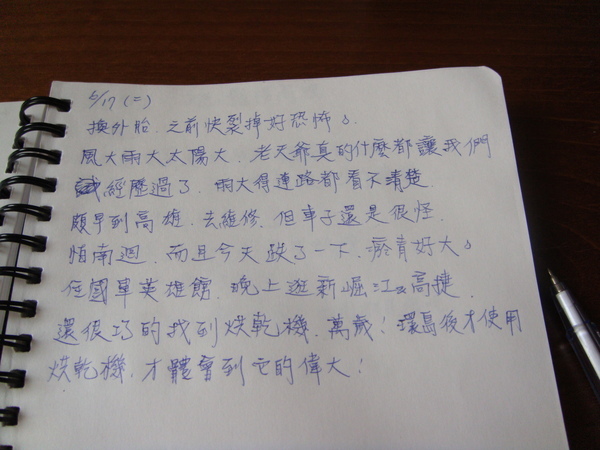 5/17 (二)
換外胎. 之前快裂掉好恐怖。
風大雨大太陽大. 老天爺真的什麼都讓我們
經歷過了. 雨大得連路都看不清楚.
頗早到高雄. 去維修. 但車子還是很怪.
怕南迴. 而且今天跌了一下. 瘀青好大。
住國軍英雄館. 晚上逛新崛江&高捷.
還很巧的找到烘乾機. 萬歲! 環島後才使用
烘乾機. 才體會到它的偉大!